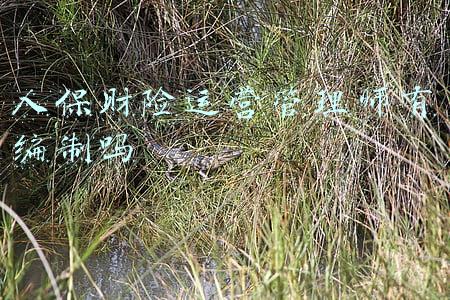 人保财险运营管理师有
编制吗